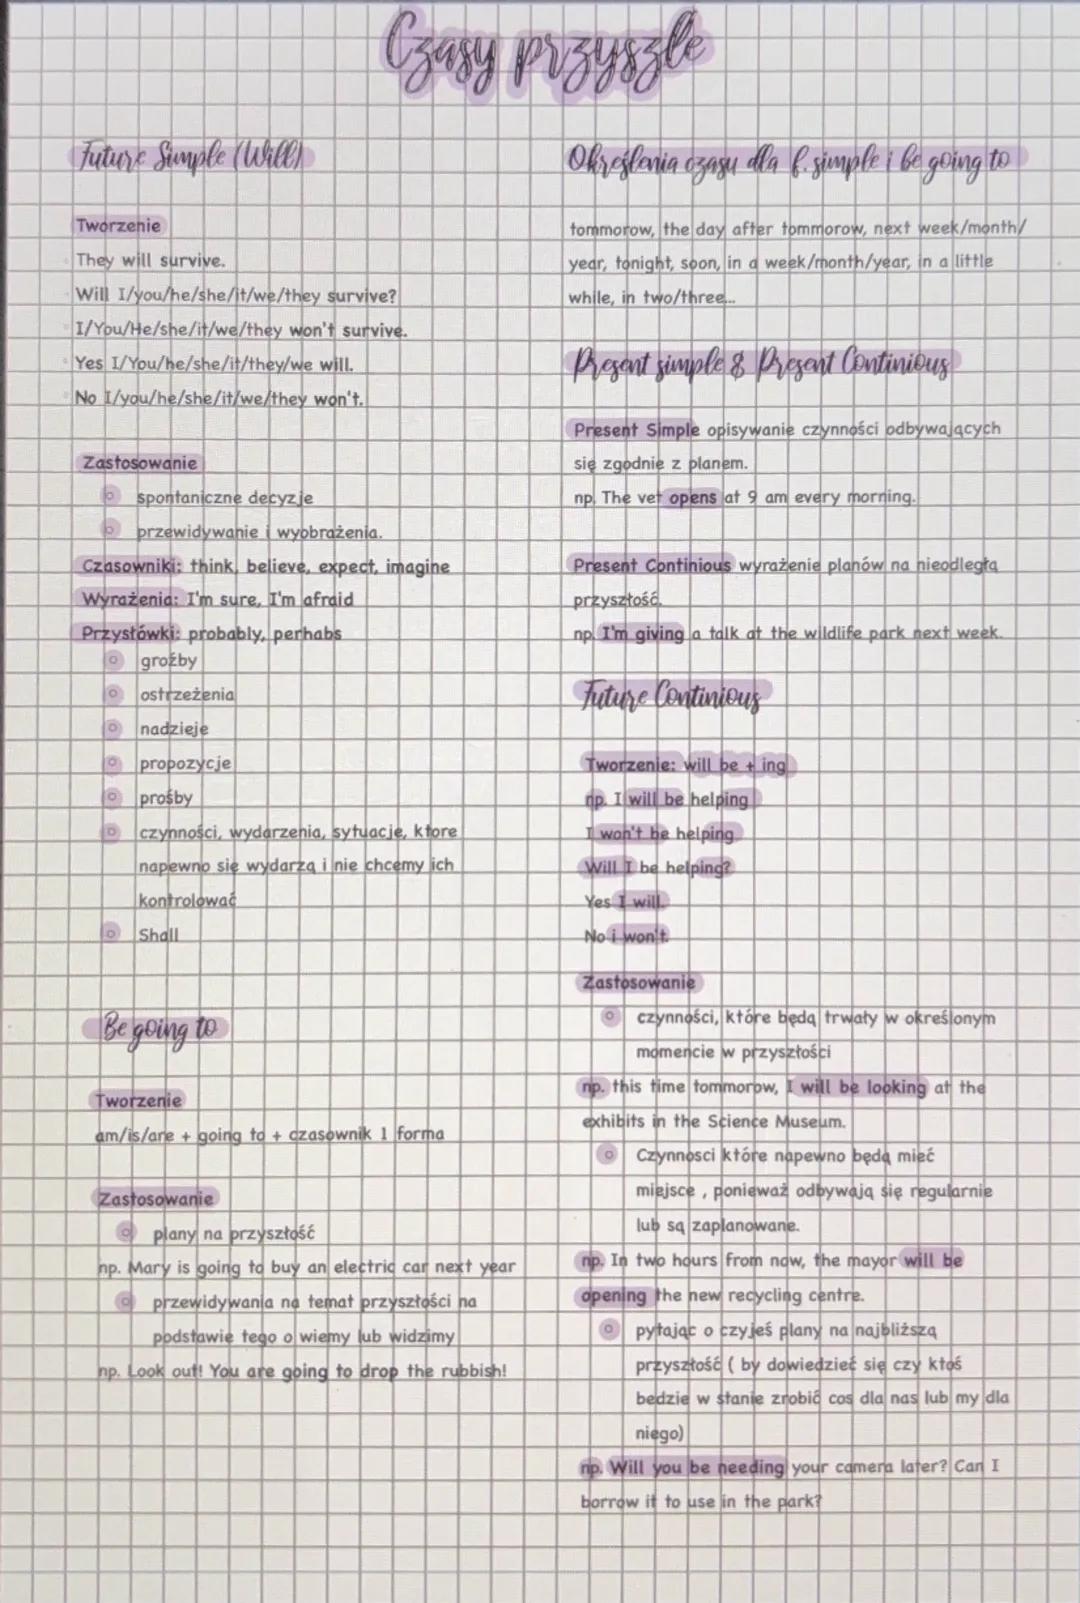 Czasy przyszłe
Future Simple (Will)
Tworzenie
They will survive.
Will I/you/he/she/it/we/they survive?
I/You/He/she/it/we/they won't survive.
Yes I/You/he/she/it/they/we will.
No I/you/he/she/it/we/they won't.
Zastosowanie
spontaniczne decyzje
przewidywanie i wyobrażenia.
Czasowniki: think, believe, expect, imagine
Wyrażenia: I'm sure, I'm afraid
Przysłówki: probably, perhabs
groźby
ostrzeżenia
nadzieje
propozycje
prośby
czynności, wydarzenia, sytuacje, ktore
napewno się wydarzą i nie chcemy ich
kontrolować
Shall
Be going to
Tworzenie
am/is/are + going to + czasownik 1 forma
Zastosowanie
plany na przyszłość
np. Mary is going to buy an electric car next year
przewidywania na temat przyszłości na
podstawie tego o wiemy lub widzimy
np. Look out! You are going to drop the rubbish!
Określenia czasu dla f. simple i be going to
tommorow, the day after tommorow, next week/month/
year, tonight, soon, in a week/month/year, in a little
while, in two/three...
Present simple & Present Continious
Present Simple opisywanie czynności odbywających
się zgodnie z planem.
np. The vet opens at 9 am every morning.
Present Continious wyrażenie planów na nieodległą
przyszłość.
np. I'm giving a talk at the wildlife park next week.
Future Continious
Tworzenie: will be + ing
np. I will be helping
I won't be helping
Will I be helping?
Yes I will.
No i won't.
Zastosowanie
czynności, które będą trwały w określonym
momencie w przyszłości
np. this time tommorow, I will be looking at the
exhibits in the Science Museum.
Czynnosci które napewno będą mieć
miejsce , ponieważ odbywają się regularnie
lub są zaplanowane.
np. In two hours from now, the mayor will be
opening the new recycling centre.
pytając o czyjeś plany na najbliższą
przyszłość ( by dowiedzieć się czy ktoś
bedzie w stanie zrobić cos dla nas lub my dla
niego)
np. Will you be needing your camera later? Can I
borrow it to use in the park?